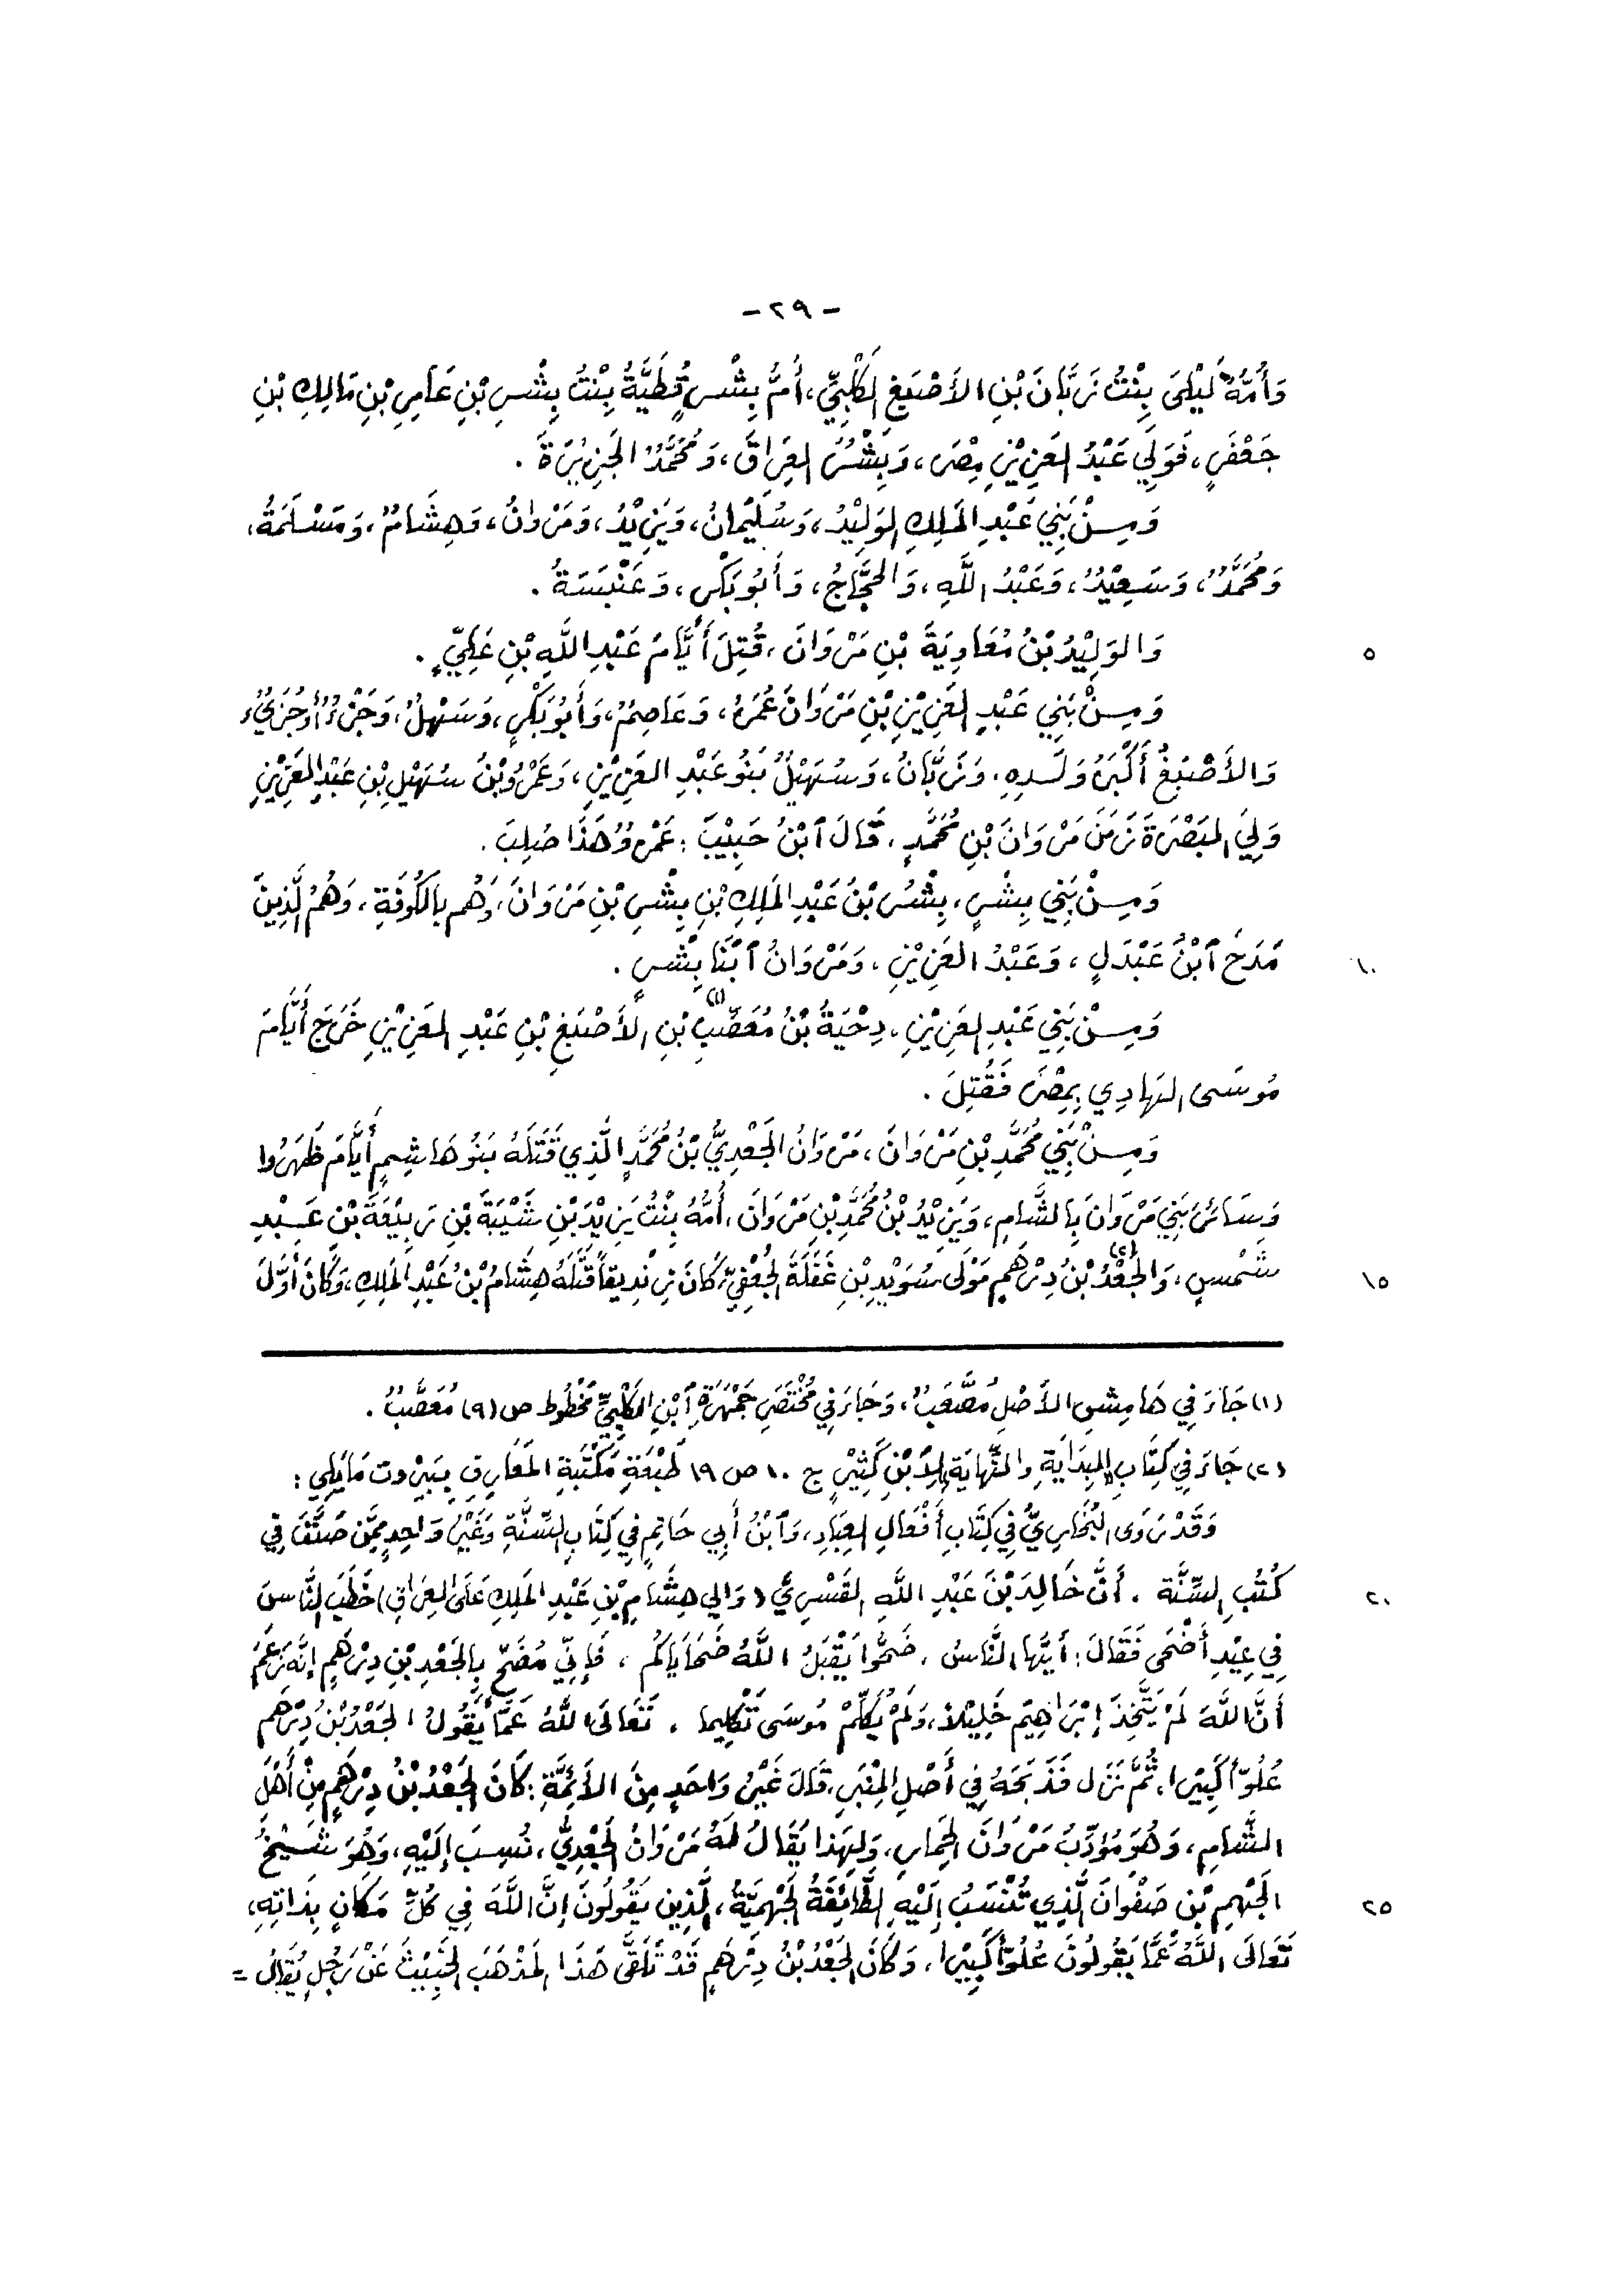 - ٢٩ -
وَأُمُّهُ لَيْلَى بِنْتُ زَبَّانَ بْنِ الأَصْبَغِ الكَلْبِيِّ، أُمُّ بِشْرٍ قُطَيَّةُ بِنْتُ بِشْرِ بْنِ عَامِرِ بْنِ مَالِكِ بْنِ
جَعْفَرٍ، فَوَلِيَ عَبْدُ العَزِيْزِ مِصْرَ، وَبِشْرُ العِرَاقَ، وَمُحَمَّدُ الجَزِيْرَةَ .
وَمِنْ بَنِي عَبْدِ المَلِكِ الوَلِيْدُ، وَسُلَيْمَانُ، وَيَزِيْدُ، وَمَرْوَانُ، وَهِشَامٌ، وَمَسْلَمَةُ،
وَمُحَمَّدٌ، وَسَعِيْدٌ، وَعَبْدُ اللَّهِ، وَالحَجَّاجُ، وَأَبُو بَكْرٍ، وَعَنْبَسَةُ .
٥ وَالوَلِيْدُ بْنُ مُعَاوِيَةَ بْنِ مَرْوَانَ، قُتِلَ أَيَّامَ عَبْدِ اللَّهِ بْنِ عَلِيٍّ .
وَمِنْ بَنِي عَبْدِ العَزِيْزِ بْنِ مَرْوَانَ عُمَرُ، وَعَاصِمٌ، وَأَبُو بَكْرٍ، وَسَهْلٌ، وَجَزْءٌ أُوجُزَيْءٌ
وَالأَصْبَغُ أَكْبَرُ وَلَدِهِ، وَزَبَّانُ، وَسُهَيْلٌ بَنُو عَبْدِ العَزِيْزِ، وَعَمْرُو بْنُ سُهَيْلِ بْنِ عَبْدِ العَزِيْزِ
وَلِيَ البَصْرَةَ زَمَنَ مَرْوَانَ بْنِ مُحَمَّدٍ، قَالَ ٱبْنُ حَبِيْبَ : عَمْرٌو هَذَا صُلِبَ .
وَمِنْ بَنِي بِشْرٍ، بِشْرُ بْنُ عَبْدِ المَلِكِ بْنِ بِشْرِ بْنِ مَرْوَانَ، وَهُم بِالكُوفَةِ، وَهُمُ الَّذِيْنَ
١٠ مَدَحَ ٱبْنُ عَبْدَلٍ، وَعَبْدُ العَزِيْزِ، وَمَرْوَانُ ٱبْنَا بِشْرٍ .
وَمِنْ بَنِي عَبْدِ العَزِيْزِ، دِحْيَةُ بْنُ مُعَصَّبِ(١) بْنِ الأَصْبَغِ بْنِ عَبْدِ العَزِيْزِ خَرَجَ أَيَّامَ
مُوسَى الهَادِي بِمِصْرَ فَقُتِلَ .
وَمِنْ بَنِي مُحَمَّدِ بْنِ مَرْوَانَ، مَرْوَانُ الجَعْدِيُّ بْنُ مُحَمَّدٍ الَّذِي قَتَلَهُ بَنُو هَاشِمٍ أَيَّامَ ظَهَرُوا
وَسَائِرَ بَنِي مَرْوَانَ بِالشَّامِ، وَيَزِيْدُ بْنُ مُحَمَّدِ بْنِ مَرْوَانَ، أُمُّهُ بِنْتُ يَزِيْدَ بْنِ شَيْبَةَ بْنِ رَبِيْعَةَ بْنِ عَبْدِ
١٥ شَمْسٍ، وَالجَعْدُ(٢) بْنُ دِرْهَمٍ مَوْلَى سُوَيْدِ بْنِ غَفَلَةَ الجُعْفِيِّ، كَانَ زِنْدِيقاً قَتَلَهُ هِشَامُ بْنُ عَبْدِ المَلِكِ، وَكَانَ أَوَّلَ
(١) جَاءَ فِي هَامِشِ الأَصْلِ مُصَّعَبٌ، وَجَاءَ فِي مُخْتَصَرِ جَمْهَرَةِ ٱبْنِ الكَلْبِيِّ مَخْطُوط ص (٩) مُعَصَّبٌ .
(٢) جَاءَ فِي كِتَابِ البِدَايَةِ وَالنِّهَايَةِ لِابْنِ كَثِيْرٍ ج ١٠ ص ١٩ طَبْعَةِ مَكْتَبَةِ المَعَارِفِ بِبَيْرُوت مَا يَلِي :
وَقَدْ رَوَى البُخَارِيُّ فِي كِتَابِ أَفْعَالِ العِبَادِ، وَٱبْنُ أَبِي حَاتِمٍ فِي كِتَابِ السُّنَّةِ وَغَيْرُ وَاحِدٍ مِمَّن صَنَّفَ فِي
٢٠ كُتُبِ السُّنَّة . أَنَّ خَالِدَ بْنَ عَبْدِ اللَّهِ القَسْرِيَّ (وَالِي هِشَامِ بْنِ عَبْدِ المَلِكِ عَلَى العِرَاقِ) خَطَبَ النَّاسَ
فِي عِيْدِ أَضْحَى فَقَالَ : أَيُّهَا النَّاسُ، ضَحُّوا يَقْبَلُ اللَّهُ ضَحَايَاكُم، فَإِنِّي مُضَحٍّ بِالجَعْدِ بْنِ دِرْهَمٍ إِنَّهُ زَعَمَ
أَنَّ اللَّهَ لَمْ يَتَّخِذَ إِبْرَاهِيْمَ خَلِيْلاً، وَلَمْ يُكَلِّمْ مُوسَى تَكْلِيما . تَعَالَى اللَّهُ عَمَّا يَقُولُ الجَعْدُ بْنُ دِرْهَمٍ
عُلُوّاً كَبِيْرا، ثُمَّ نَزَل فَذَبَحَهُ فِي أَصْلِ المِنْبَرِ، قَالَ غَيْرُ وَاحَدٍ مِنَ الأَئِمَّةِ : كَانَ الجَعْدُ بْنُ دِرْهَمٍ مِنْ أَهْلَ
الشَّامِ، وَهُوَ مُؤَدِّبُ مَرْوَانَ الحِمَارِ، وَلِهَذَا يُقَالُ لَهُ مَرْوَانُ الجَعْدِيُّ، نُسِبَ إِلَيْهِ، وَهُوَ شَيْخُ
٢٥ الجَهْمِ بْنِ صَفْوَانَ الَّذِي تُنْسَبُ إِلَيْهِ الطَّائِفَةُ الجَهْمِيَّةُ، الَّذِينَ يَقُولُونَ إِنَّ اللَّهَ فِي كُلِّ مَكَانٍ بِذَاتِهِ،
تَعَالَى اللَّهُ عَمَّا يَقُولُونَ عُلُوّاً كَبِيْرا، وَكَانَ الجَعْدُ بْنُ دِرْهَمٍ قَدْ تَلَقَّى هَذَا المَذْهَبَ الخَبِيْثَ عَنْ رَجُلٍ يُقَالُ =